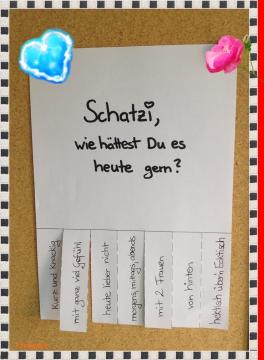 Schatzi,
wie hättest Du es
heute gern?
kurz und knackig
mit ganz viel Gefühl
heute lieber nicht
morgens, mittags, abends
mit 2 Frauen
von hinten
hektisch über'n Esstisch